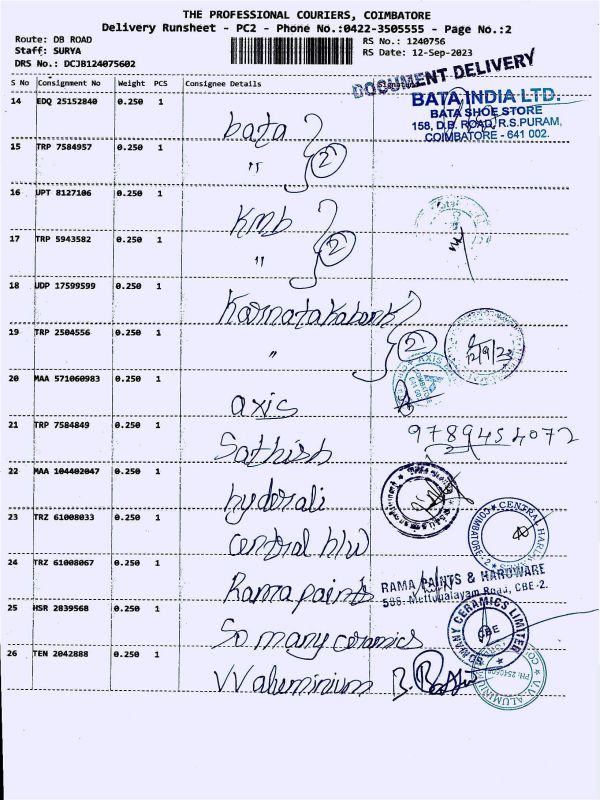 THE PROFESSIONAL COURIERS, COIMBATORE
Delivery Runsheet - PC2 - Phone No.:0422-3505555 - Page No.:2
Route: DB ROAD
Staff: SURYA
DRS No.: DCJB124075602
RS No.: 1240756
RS Date: 12-Sep-2023
DOCUMENT DELIVERY
S No Consignment No Weight PCS Consignee Details
14 EDQ 25152840 0.250 1 bata
BATA INDIA LTD.
BATA SHOE STORE
158, D.B. ROAD, R.S.PURAM,
COIMBATORE - 641 002.
15 TRP 7584957 0.250 1 " 2
16 UPT 8127106 0.250 1 KMB
17 TRP 5943582 0.250 1 " 2
18 UDP 17599599 0.250 1 Karnatakabank
19 TRP 2504556 0.250 1 " 2
12/9/23
20 MAA 571060983 0.250 1 axis
AXIS
21 TRP 7584849 0.250 1 Sathish
9789454072
22 MAA 104402047 0.250 1 hyderali
23 TRZ 61008033 0.250 1 central h/w
CENTRAL
COIMBATORE-2
24 TRZ 61008067 0.250 1 Rama paints
RAMA PAINTS & HARDWARE
586, Mettupalayam Road, CBE-2.
25 HSR 2839568 0.250 1 So many ceramics
SOMANY CERAMICS LIMITED
CBE
26 TEN 2042888 0.250 1 VV aluminium
V.V. ALUMINIUM